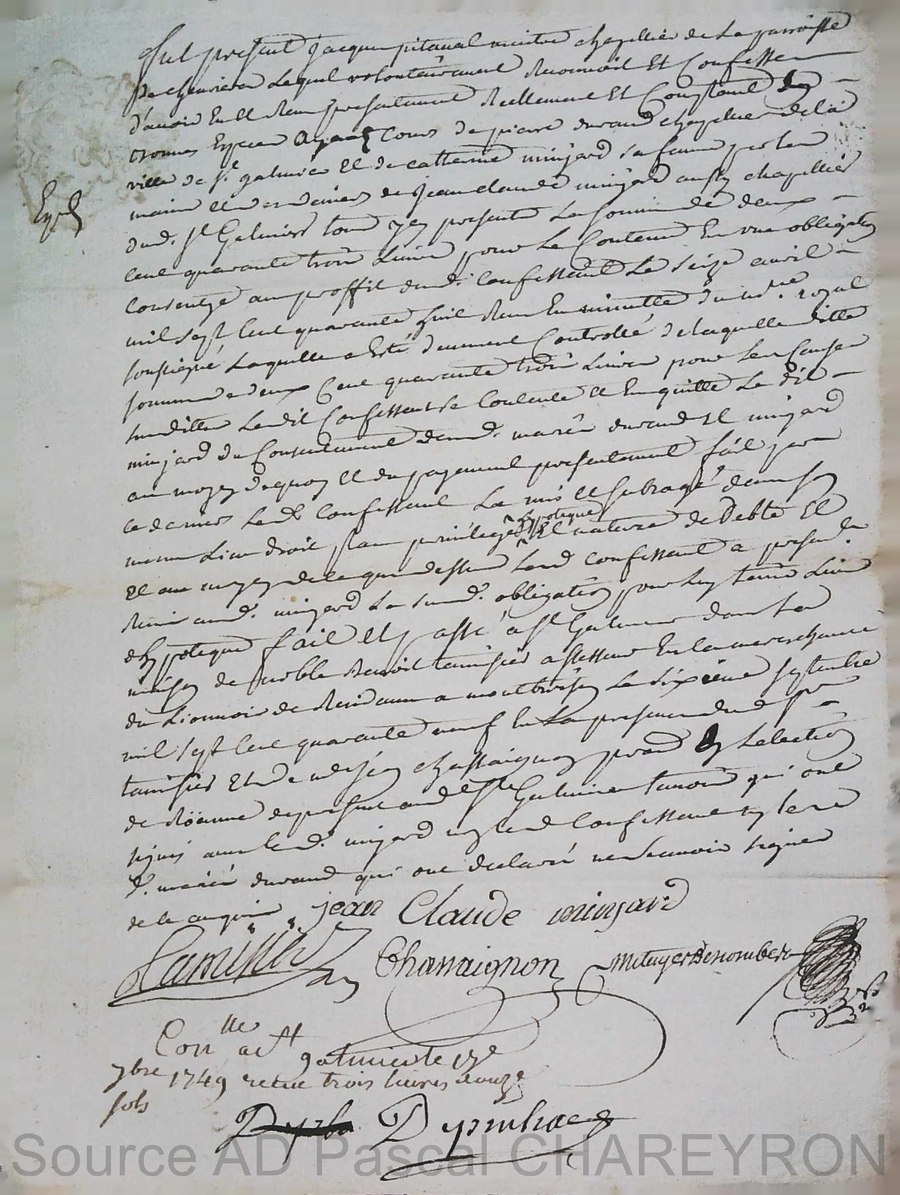 Fut présent Jacque pitaval maitre chapellié de la parroisse
De chevrieres Lequel volontairement Reconnoit Et Confesse
d'avoir Eu Et Receu presentement Reellement Et Comptant En
bonnes Espece ayant Cours de pierre durand chapellier de la
ville de st galmier Et de catherine minjard sa femme par les
mains Et des deniers de jean claude minjard aussy chapellié
Expé
dud. st Galmier tous presents La somme de deux
cent quarante trois Livres pour Le Contenu En une obligation
consentye au proffit dudt confessant Le seize avril
mil sept Cent quarante huit Receu En minutte du nore royal
soussigné Laquelle a Esté duement Controllé de laquelle ditte
somme de deux Cent quarante trois Livres pour les Causes
susdittes Ledit Confessant se Contente Et En quitte Le dit
minjard du Consentement desd. mariés durand Et minjard
au moyen de quoy Et du payement presentement fait par
ce dernier Led. Confessant La mis Et subrogé dans son
mesme Lieu droit place privilege hypoteque Et nature de Debte Et
Et au moyen de ce que dessus Led. confessant a presentement
Remis aud. minjard La susd. obligation pour luy tenir Lieu
d'hypoteque fait Et passé a st Galmier dans la
maison de noble Benoit tamisier assesseur En la mareschaussée
du Lionnois de Residance a montbrison Le sixieme septembre
mil sept Cent quarante neuf En La presence dud. sr
tamisier Et de me jean chassaignon En Lelection
de Roanne de present aud. st Galmier temoins qui ont
signés avec led. minjard non led Confessant ny les
d. mariés durand qui ont declaré ne sçavoir signer
de ce enquis
jean Claude minjard
Tamisier Chassaignon
Conlle a st galmier le
7bre 1749 receu trois livres douze
sols
Source AD Pascal CHAREYRON